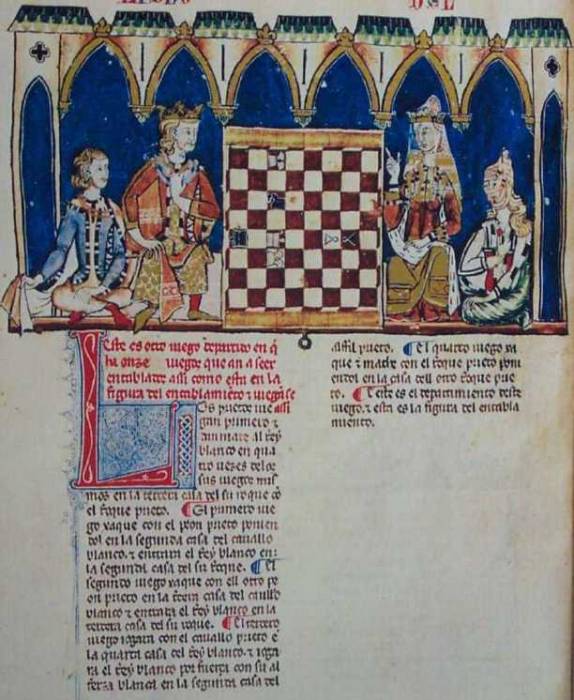 Este es otro iuego departido en q̃
ha onze que an a seer
entablados assi como esta en la
figura del entablamiẽto & iuegã se
Los prietos iue assi
gan primero &
dan mate al Rey
blanco en qua
tro uezes delos
sus iuegos mis
mos en la tercera casa del su roque cõ
el roque prieto. El primero iue
go xaque con el peon prieto ponien
dol en la segunda casa del cauallo
blanco. & entrara el Rey blanco en
la segunda casa del su roque. El
segundo iuego xaque con ell otro pe
on prieto en la tercera casa del cauallo
blanco & entrara el Rey blanco en la
tercera casa del su roque. El tercero
iuego iogara con el cauallo prieto ẽ
la quarta casa del Rey blanco. & ioga
ra el Rey blanco por fuerça con su al
ferza blanca en la segunda casa del
alffil prieto. El quarto iuego xa
que & mate con el roque prieto poni
endol en la casa dell otro roque prie
to. Este es el departimiento deste
iuego. & esta es la figura del entabla
miento.